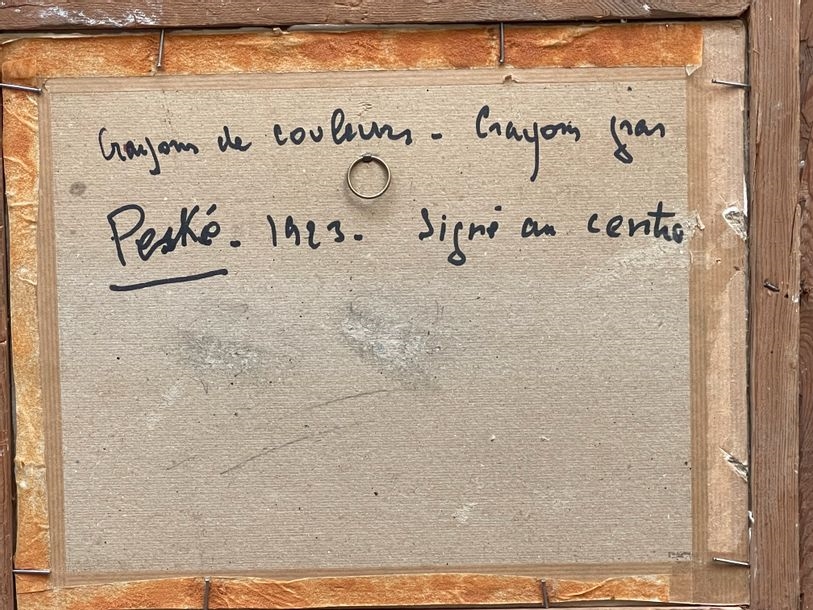 Crayons de couleurs - Crayons gras
Peské. 1923. Signé au centre